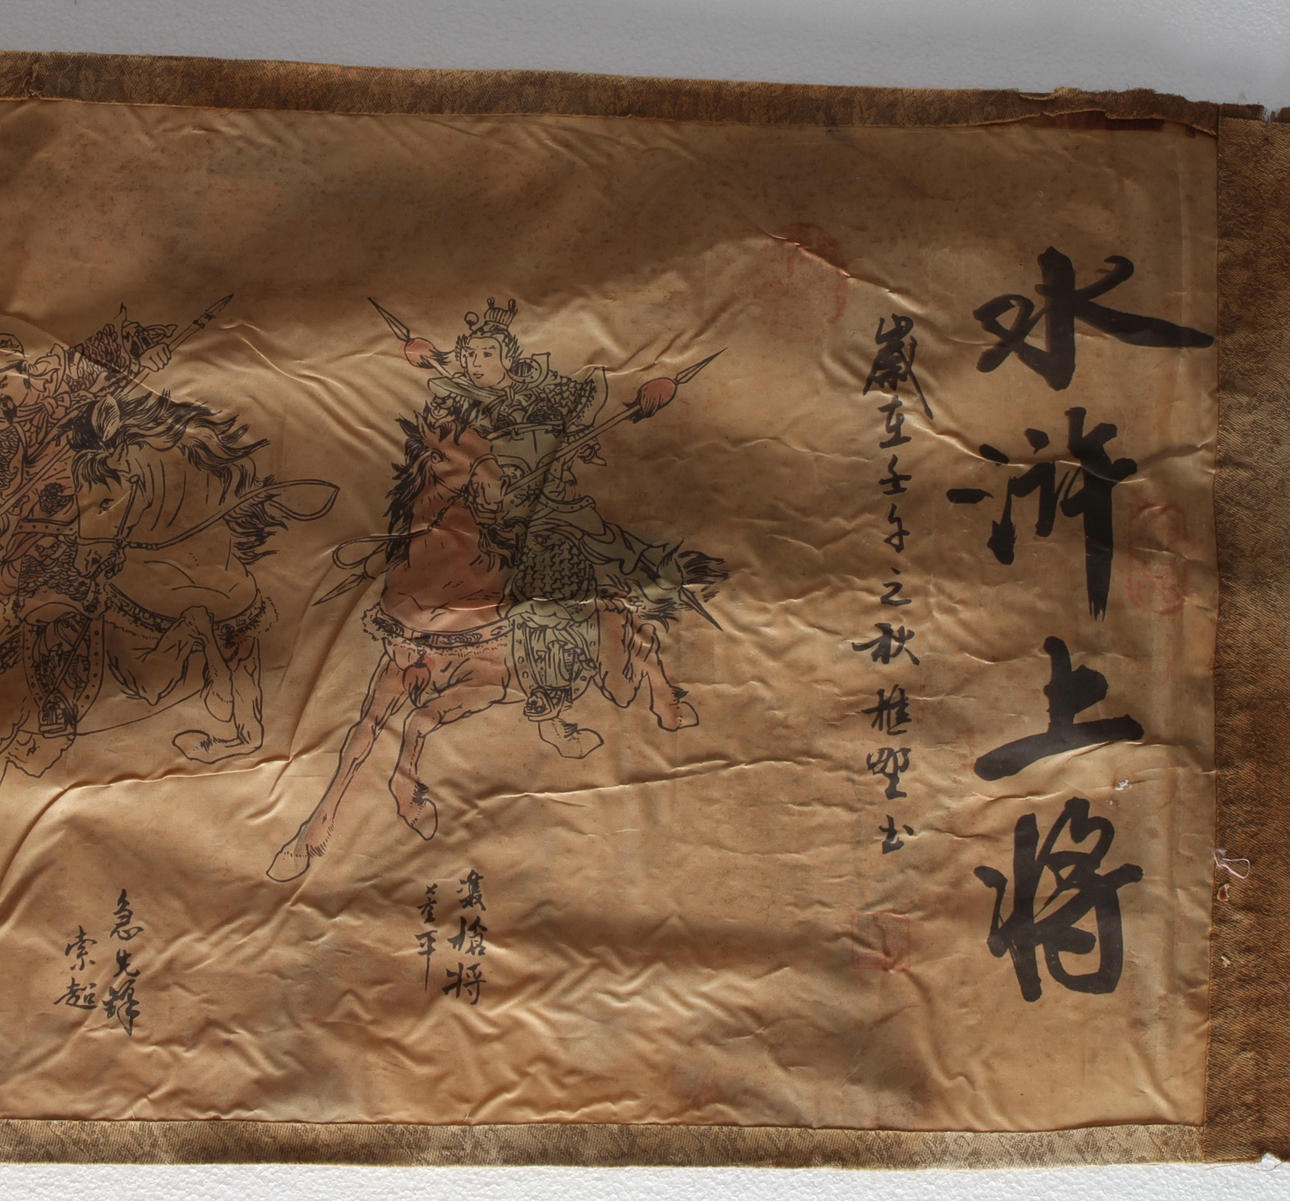 水滸上將
歲在壬午之秋樵野书
雙槍將
董平
急先鋒
索超